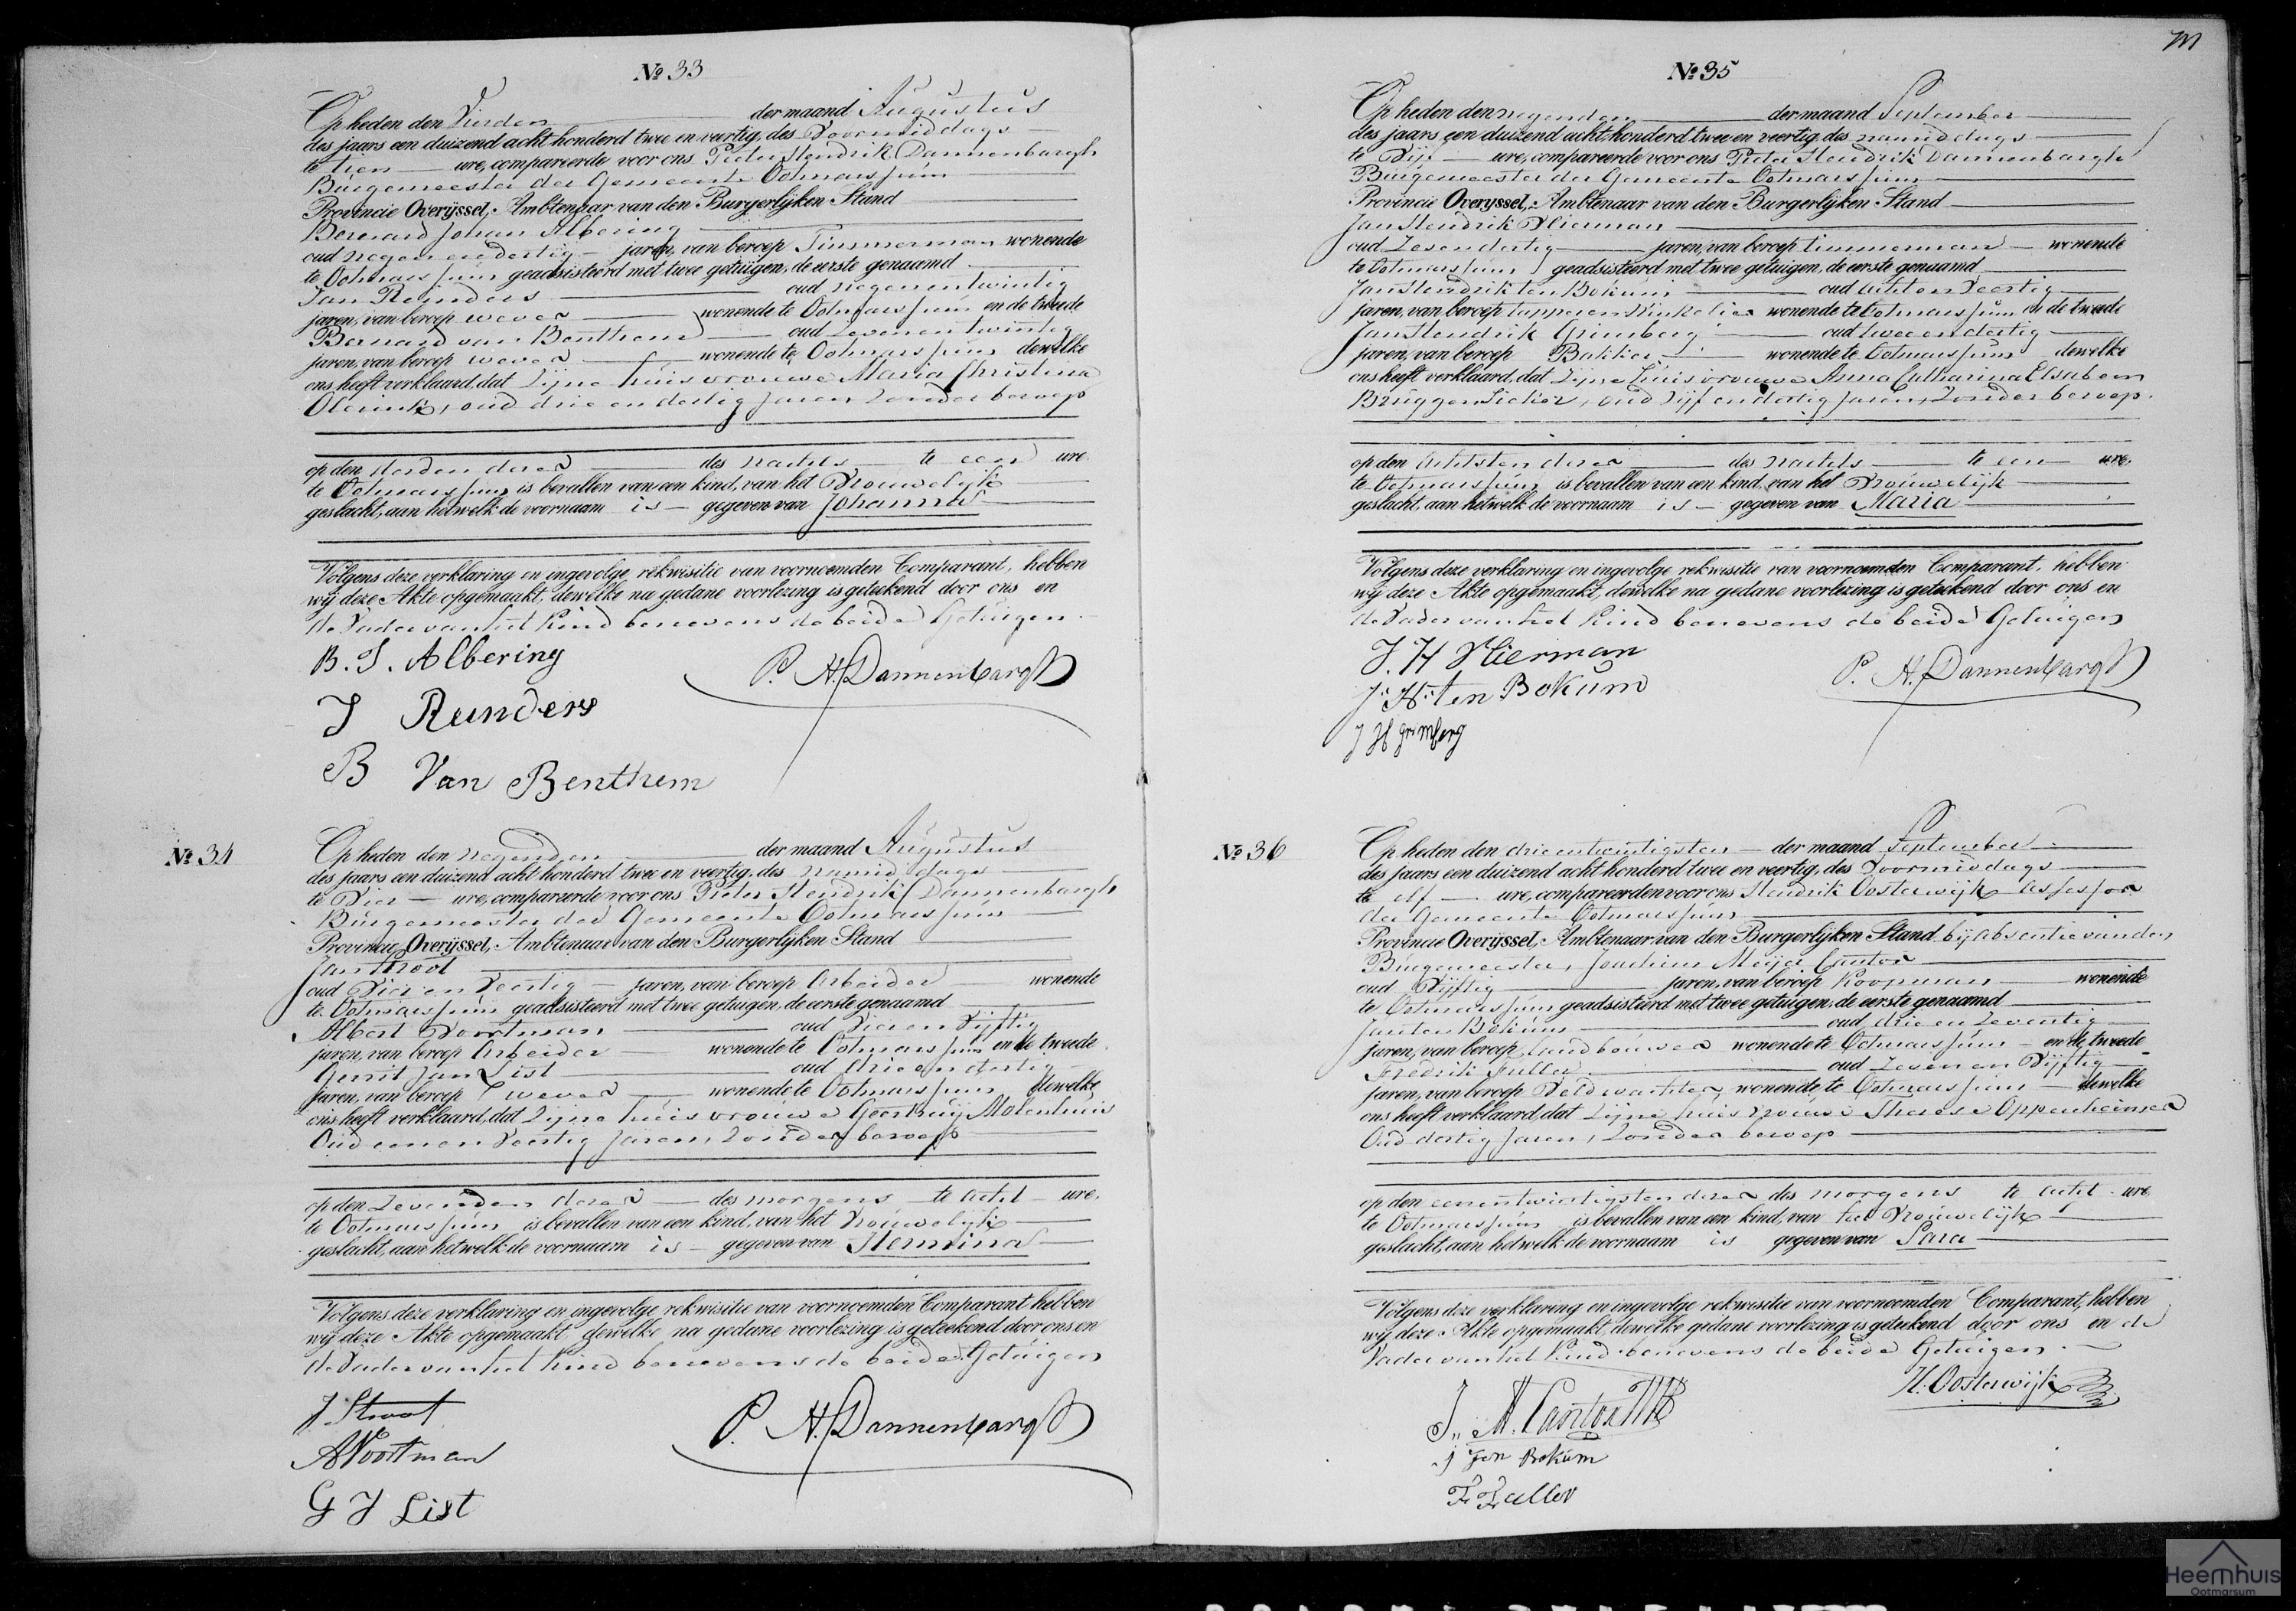 № 33
Op heden den Vierden der maand Augustus
des jaars een duizend acht honderd twee en veertig, des Voormiddags
te tien ure, compareerde voor ons Pieter Hendrik Dannenbargh
Burgemeester der Gemeente Ootmarssum
Provincie Overijssel, Ambtenaar van den Burgerlijken Stand
Berenard Johan Albering
oud negen en dertig jaren, van beroep Timmerman wonende
te Ootmarssum geadsisteerd met twee getuigen, de eerste genaamd
Jan Reijnders oud negenentwintig
jaren, van beroep wever wonende te Ootmarssum en de tweede
Bernard van Benthem oud zevenentwintig
jaren, van beroep wever wonende te Ootmarssum dewelke
ons heeft verklaard, dat zijne huisvrouwe Maria Christina
Olerink, oud drie en dertig jaren zonder beroep
op den derden dezer des nachts te een ure
te Ootmarssum is bevallen van een kind, van het Vrouwelijk
geslacht, aan hetwelk de voornaam is gegeven van Johanna
Volgens deze verklaring en ingevolge rekwisitie van voornoemden Comparant, hebben
wij deze Akte opgemaakt, dewelke na gedane voorlezing is geteekend door ons en
de Vader van het Kind benevens de beide Getuigen
B. J. Albering
P. H. Dannenbargh
J Reinders
B Van Benthem
№ 34
Op heden den negenden der maand Augustus
des jaars een duizend acht honderd twee en veertig, des namiddags
te Vier ure, compareerde voor ons Pieter Hendrik Dannenbargh
Burgemeester der Gemeente Ootmarssum
Provincie Overijssel, Ambtenaar van den Burgerlijken Stand
Jan Stroot
oud Vier en Veertig jaren, van beroep Arbeider wonende
te Ootmarssum geadsisteerd met twee getuigen, de eerste genaamd
Albert Voortman oud Vier en Vijftig
jaren, van beroep Arbeider wonende te Ootmarssum en de tweede
Gerrit Jan List oud drie en dertig
jaren, van beroep wever wonende te Ootmarssum dewelke
ons heeft verklaard, dat zijne huisvrouwe Geertruij Molenhuis
Oud een en Veertig jaren, zonder beroep
op den zevenden dezer des morgens te acht ure
te Ootmarssum is bevallen van een kind, van het Vrouwelijk
geslacht, aan hetwelk de voornaam is gegeven van Hermina
Volgens deze verklaring en ingevolge rekwisitie van voornoemden Comparant hebben
wij deze Akte opgemaakt dewelke na gedane voorlezing is geteekend door ons en
de Vader van het Kind benevens de beide Getuigen
J Stroot
P. H. Dannenbargh
A Voortman
G J List
№ 35
Op heden den negenden der maand September
des jaars een duizend acht honderd twee en veertig des namiddags
te Vijf ure, compareerde voor ons Pieter Hendrik Dannenbargh
Burgemeester der Gemeente Ootmarssum
Provincie Overijssel, Ambtenaar van den Burgerlijken Stand
Jan Hendrik Vlierman
oud Zesendertig jaren, van beroep timmerman wonende
te Ootmarssum geadsisteerd met twee getuigen, de eerste genaamd
Jan Hendrik ten Bokum oud achtenveertig
jaren, van beroep tapper en Winkelier wonende te Ootmarssum en de tweede
Jan Hendrik Grimberg oud twee en dertig
jaren, van beroep Bakker wonende te Ootmarssum dewelke
ons heeft verklaard, dat zijne huisvrouwe Anna Catharina Elsabem
Bruggen, oud Vijf en dertig jaren, zonder beroep.
op den Achtsten dezer des nachts te een ure
te Ootmarssum is bevallen van een kind van het Vrouwelijk
geslacht, aan hetwelk de voornaam is gegeven van Maria
Volgens deze verklaring en ingevolge rekwisitie van voornoemden Comparant, hebben
wij deze Akte opgemaakt, dewelke na gedane voorlezing is geteekend door ons en
de Vader van het Kind benevens de beide Getuigen
J. H Vlierman
P. H. Dannenbargh
J. H. ten Bokum
J H Grimberg
№ 36
Op heden den drieentwintigsten der maand September
des jaars een duizend acht honderd twee en veertig, des Voormiddags
te elf ure, compareerden voor ons Hendrik Oosterwijk Assessor
der Gemeente Ootmarssum
Provincie Overijssel, Ambtenaar van den Burgerlijken Stand bij absentie van den
Burgemeester, Joachim Meijer Cantor
oud Vijftig jaren, van beroep Koopman wonende
te Ootmarssum geadsisteerd met twee getuigen, de eerste genaamd
Jan ten Bokum oud drie en Zeventig
jaren, van beroep landbouwer wonende te Ootmarssum en de tweede
Fredrik Fuller oud Zeven en Vijftig
jaren, van beroep Veldwachter wonende te Ootmarssum dewelke
ons heeft verklaard, dat zijne huisvrouwe Therese Oppenheimer
Oud dertig jaren, zonder beroep
op den eenentwintigsten dezer des morgens te acht ure
te Ootmarssum is bevallen van een kind, van het Vrouwelijk
geslacht, aan hetwelk de voornaam is gegeven van Sara
Volgens deze verklaring en ingevolge rekwisitie van voornoemden Comparant, hebben
wij deze Akte opgemaakt, dewelke gedane voorlezing is geteekend door ons en de
Vader van het Kind benevens de beide Getuigen
H. Oosterwijk
J. M. Cantor
J ten Bokum
F. Fuller
Heemhuis
Ootmarsum